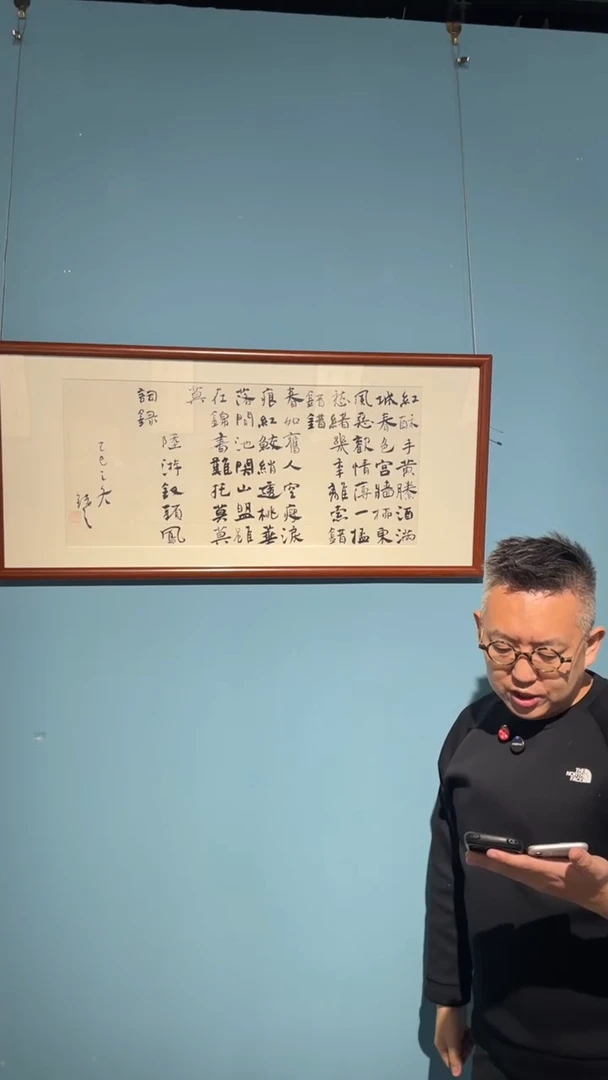 紅酥手黃縢酒滿
城春色宮牆柳東
風惡歡情薄一懷
愁緒幾年離索錯
錯錯
春如舊人空瘦淚
痕紅鮫綃透桃華
落閒池閣山盟雖
在錦書難托莫莫
莫
陸游釵頭鳳
詞錄
乙巳之冬
THE
NORTH
FACE